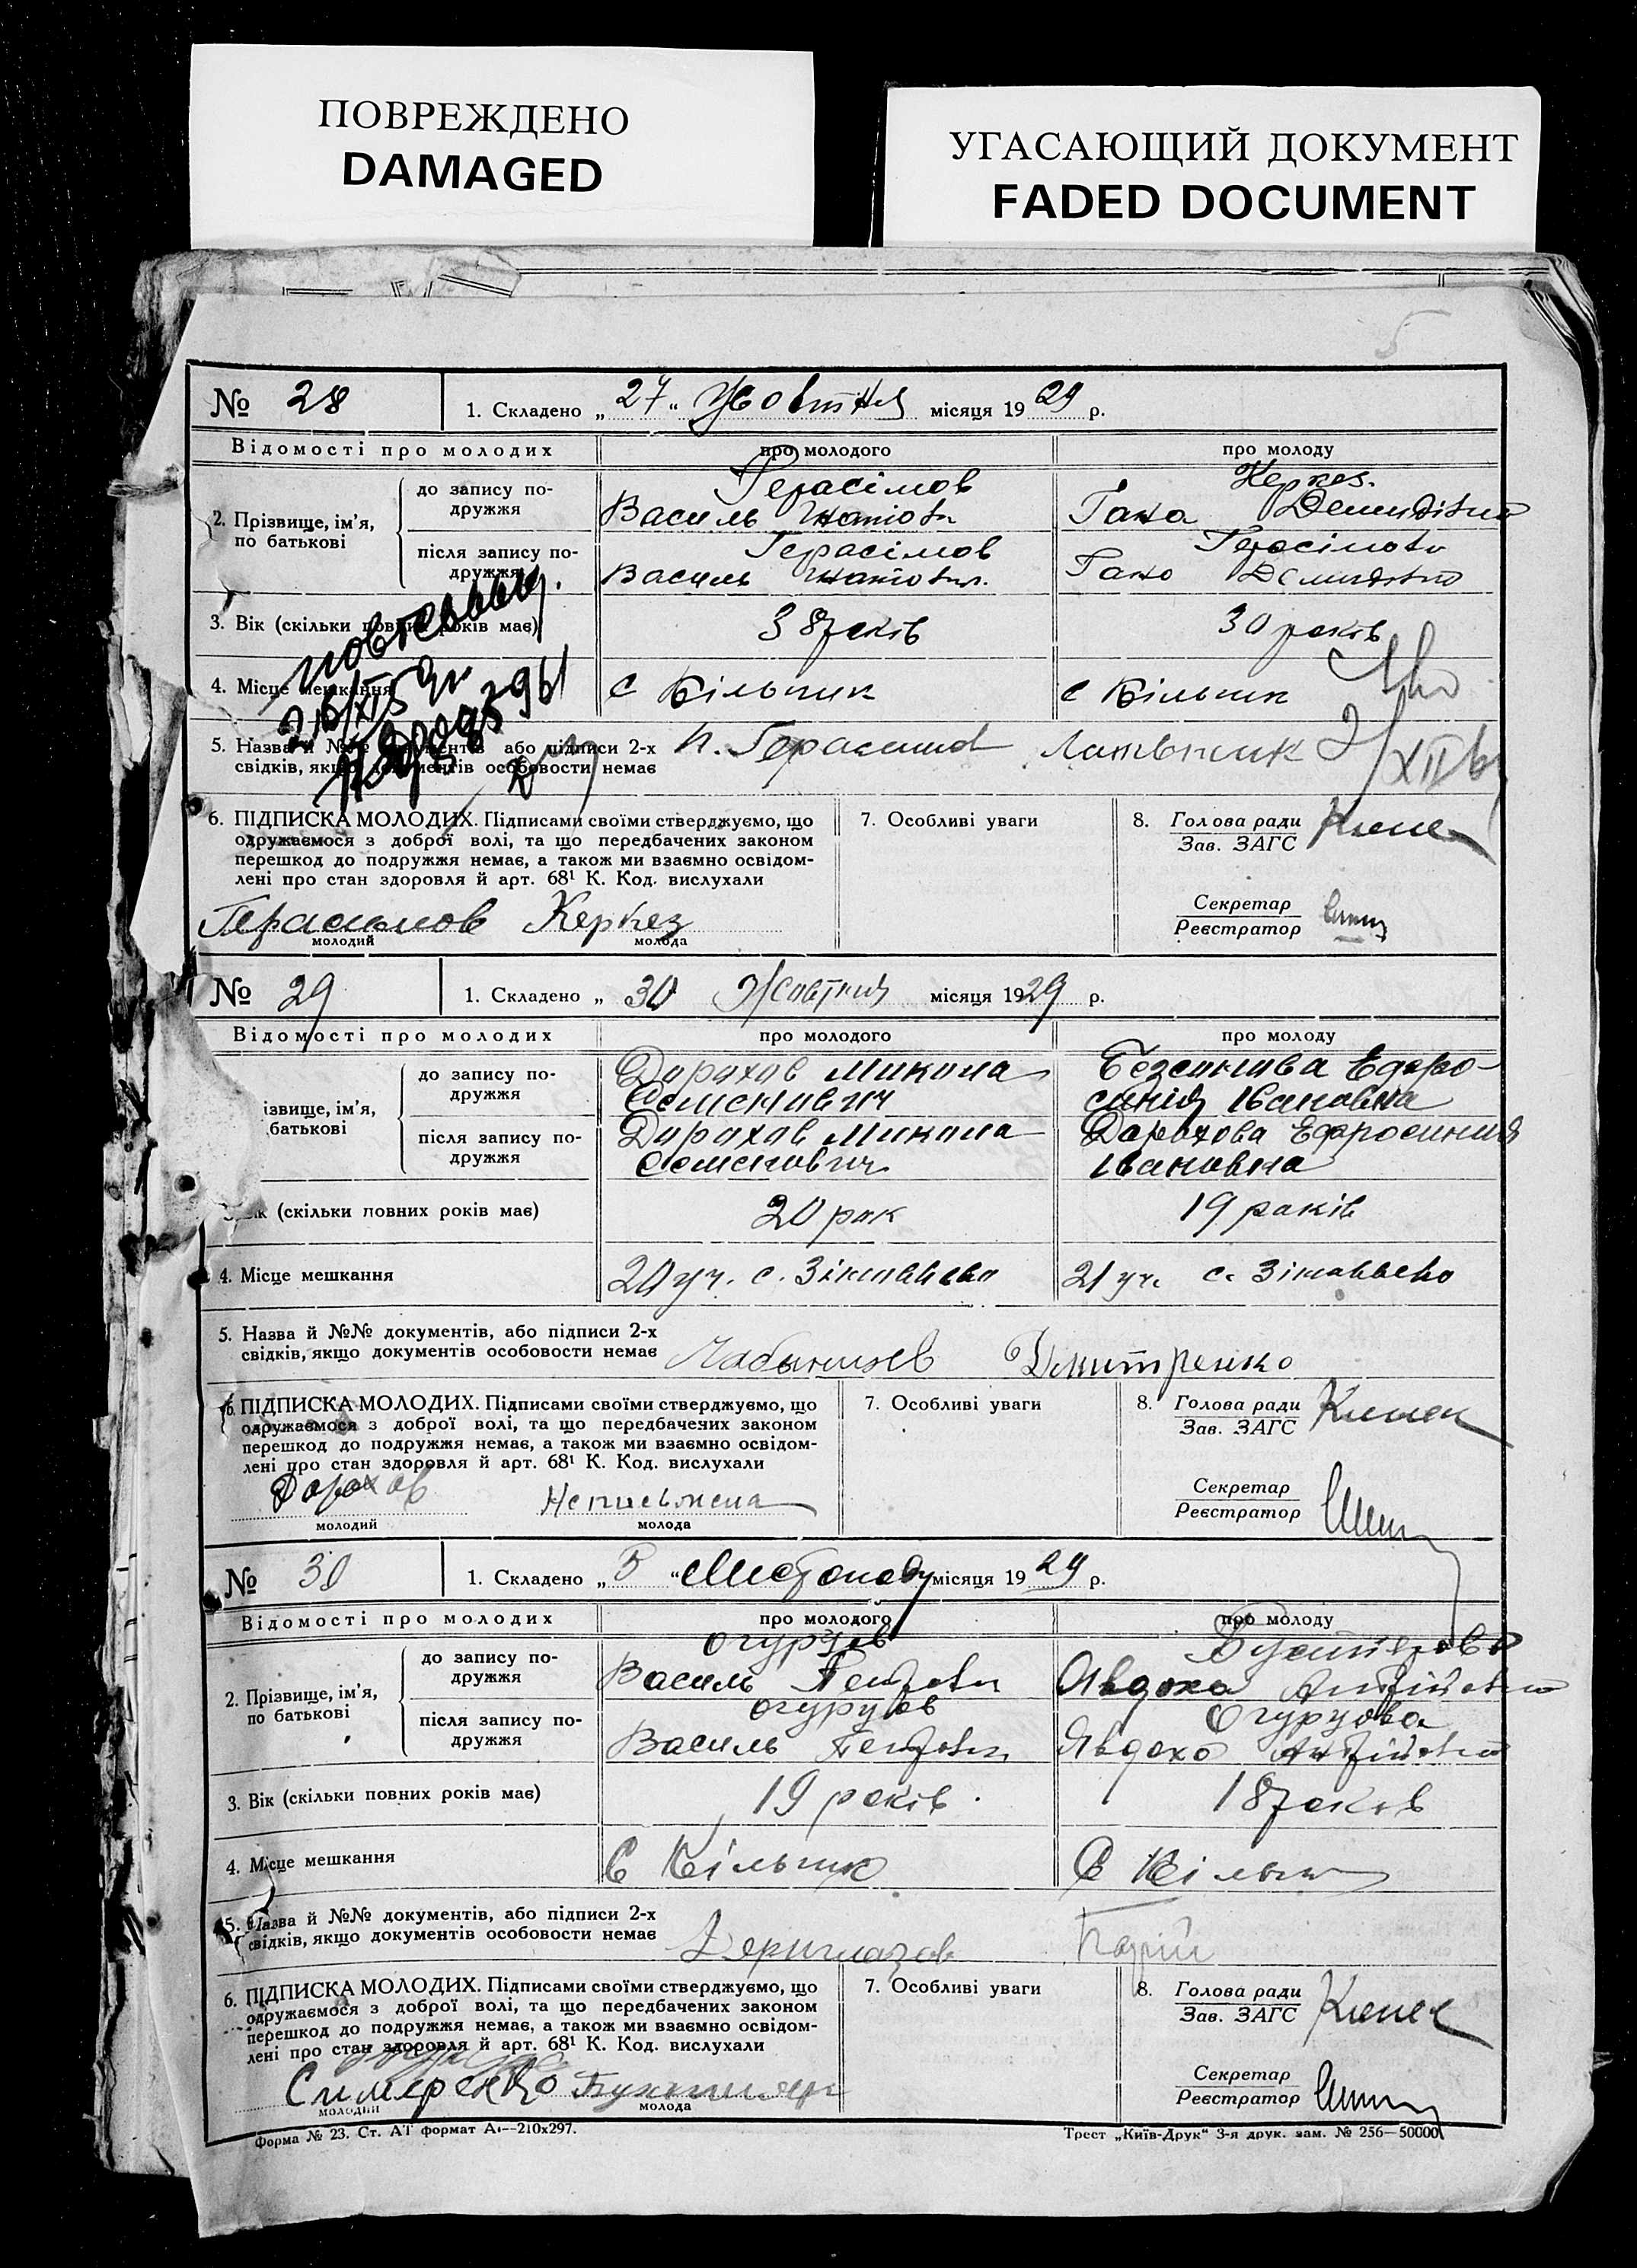 ПОВРЕЖДЕНО
DAMAGED
УГАСАЮЩИЙ ДОКУМЕНТ
FADED DOCUMENT
5
№ 28 1. Складено „ 27 “ Жовтня місяця 1929 р.
Відомості про молодих про молодого про молоду
до запису по-
дружжя
Герасімов
Василь
Керкез
Гана Демидівна
2. Прізвище, ім’я,
по батькові
після запису по-
дружжя
Герасімов
Василь
Герасімова
Гана Демидівна
3. Вік (скільки повних років має) 38 років 30 років
4. Місце мешкання с Вільник с Вільник
5. Назва й №№ документів або підписи 2-х
свідків, якщо документів особовости немає
6. ПІДПИСКА МОЛОДИХ. Підписами своїми стверджуємо, що
одружаємося з доброї волі, та що передбачених законом
перешкод до подружжя немає, а також ми взаємно освідом-
лені про стан здоровля й арт. 68¹ К. Код. вислухали
Герасимов Керкез
молодий молода
7. Особливі уваги
8. Голова ради
Зав. ЗАГС
Секретар
Реєстратор
№ 29 1. Складено „ 30 Жовтня місяця 1929 р.
Відомості про молодих про молодого про молоду
до запису по-
дружжя
Дорохов Микола
Семенович
Ефро-
синія Івановна
ізвище, ім’я,
батькові
після запису по-
дружжя
Дорохов Микола
Семенович
Дорохова Ефросиния
Івановна
Вік (скільки повних років має) 20 рок 19 років
4. Місце мешкання 20 уч. с. 21 уч. с.
5. Назва й №№ документів, або підписи 2-х
свідків, якщо документів особовости немає
Дмитренко
6. ПІДПИСКА МОЛОДИХ. Підписами своїми стверджуємо, що
одружаємося з доброї волі, та що передбачених законом
перешкод до подружжя немає, а також ми взаємно освідом-
лені про стан здоровля й арт. 68¹ К. Код. вислухали
Дорохов Неписьмена
молодий молода
7. Особливі уваги
8. Голова ради
Зав. ЗАГС
Секретар
Реєстратор
№ 30 1. Складено „ 5 “ Листопаду місяця 1929 р.
Відомості про молодих про молодого про молоду
до запису по-
дружжя
Огурцов
Василь Петрович
Явдоха Андрійовна
2. Прізвище, ім’я,
по батькові
після запису по-
дружжя
Огурцов
Василь Петрович
Огурцова
Явдоха Андрійовна
3. Вік (скільки повних років має) 19 років 18 років
4. Місце мешкання С Вільник С
5. Назва й №№ документів, або підписи 2-х
свідків, якщо документів особовости немає
Дериглазов
6. ПІДПИСКА МОЛОДИХ. Підписами своїми стверджуємо, що
одружаємося з доброї волі, та що передбачених законом
перешкод до подружжя немає, а також ми взаємно освідом-
лені про стан здоровля й арт. 68¹ К. Код. вислухали
молодий молода
7. Особливі уваги
8. Голова ради
Зав. ЗАГС
Секретар
Реєстратор
Форма № 23. Ст. АТ формат А₄—210х297.
Трест „Київ-Друк“ 3-я друк. зам. № 256—50000